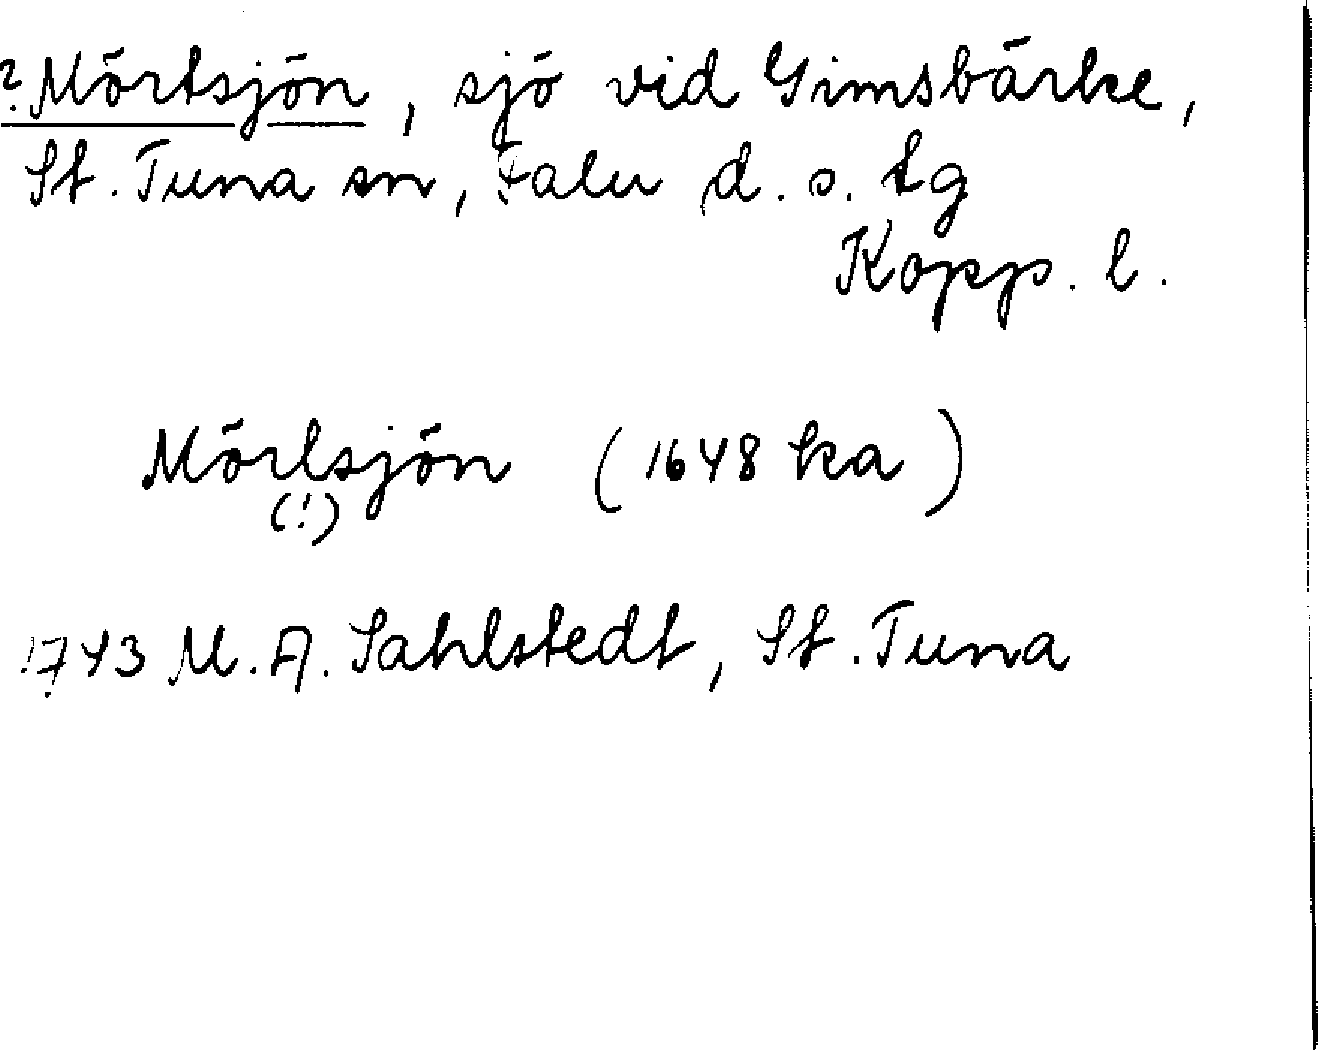 ? Mörtsjön, sjö vid Gimsbärke,
St. Tuna sn, Falu d. s. tg
Kopp. l.
Mörlsjön (1648 ka)
(!)
1743 M. A. Sahlstedt, St. Tuna